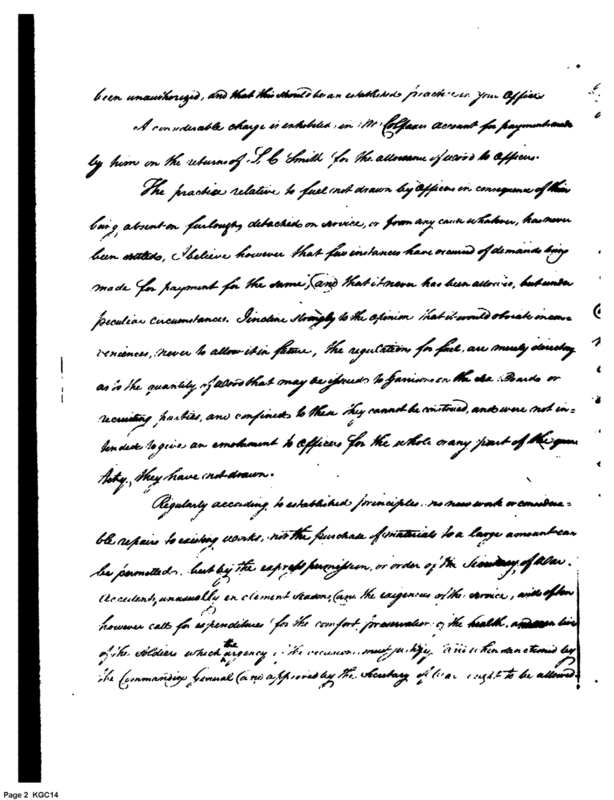 been unauthorized, and that this should be an established practice in your Office
A considerable charge is exhibited in Mr account for payments made
by him on the returns of L. C Smith for the allowance of wood to Officers.
The practice relative to fuel not drawn by Officers in consequence of their
being absent on furloughs detached on service, or from any cause whatever, has never
been settled, I believe however that few instances have occured of demands being
made for payment for the same, and that it never has been allowed, but under
peculiar circumstances. I incline strongly to the opinion that it would obviate incon=
veniences, never to allow it in future, The regulations for fuel are merely directory
as to the quantity of wood that may be issued to Garrisons on the Sea Boards or
recruiting parties, and confined to these they cannot be construed, and were not in=
tended to give an emolument to Officers for the whole or any part of the quan
tity, they have not drawn.
Regularly according to established principles no new work or considera=
ble repairs to existing works, nor the purchase of materials to a large amount can
be permitted but by the express permission, or order of the Secretary of War.
Accidents, unusually in clement Season, and the exigences of the service, will often
however call for expenditures for the comfort preservation of the health, and even lives
of the Soldiers which the urgency of the occasion must justify and when sanctioned by
the Commanding General and approved by the Secretary of War ought to be allowed.
Page 2 KGC14